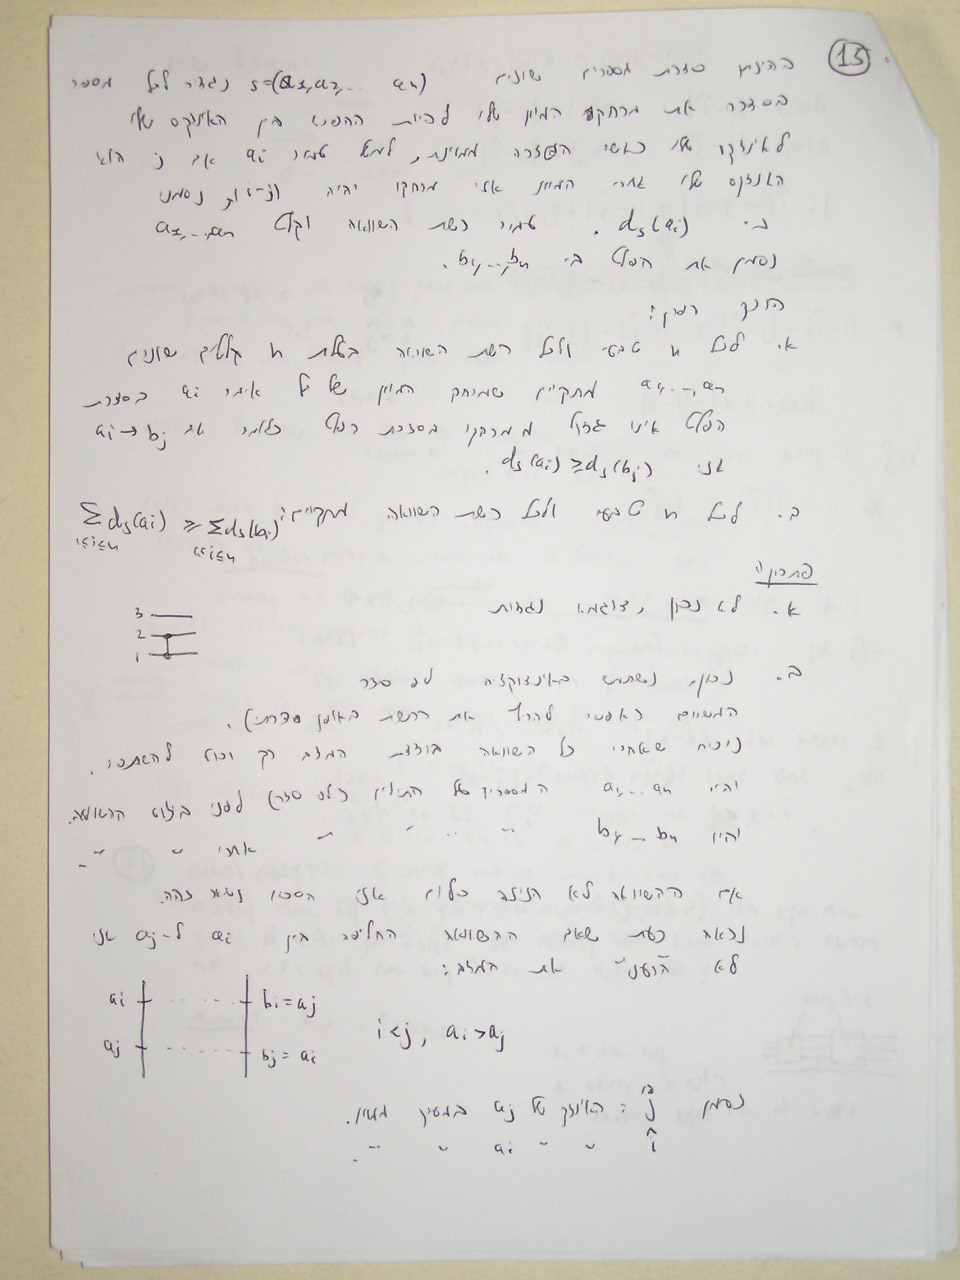 15
בהינתן סדרת מספרים שונים s=(a1,a2,... an) נגדיר לכל מספר
בסדרה את מרחק המיון שלו להיות ההפרש בין האינדקס שלו
לאינדקס שלו כאשר הסדרה ממוינת, למשל עבור ai אם j הוא
האינדקס שלו אחרי המיון אזי מרחקו יהיה |j-i|, נסמנו
ב- ds(ai). עבור רשת השוואה וקלט a1,...,an
נסמן את הפלט ב- b1,...,bn.
הוכח הפרך:
א. לכל n טבעי ולכל רשת השוואה בעלת n קלטים שונים
a1,...,an מתקיים שמרחק המיון של כל איבר ai בסדרת
הפלט אינו גדול ממרחקו בסדרת הקלט כלומר אם ai→bj
אזי ds(ai)≥ds(bj).
ב. לכל n טבעי ולכל רשת השוואה מתקיים: Σds(ai) ≥ Σds(bi)
1≤i≤n 1≤i≤n
פתרון:
א. לא נכון, דוגמא נגדית
3
2
1
ב. נכון, נשתמש באינדוקציה לפי סדר
המשווים (אפשר להריץ את הרשת באופן סדרתי).
נוכיח שאחרי כל השוואה בודדת המצב רק יכול להשתפר.
יהיו a1...an המספרים על התילים (לפי סדר) לפני ביצוע ההשוואה.
ויהיו b1...bn " " " " אחרי " "
אם ההשוואה לא הזיזה כלום אזי הסכום נשאר כזהה.
נראה כעת שאם ההשוואה החליפה בין ai ל-aj אזי
לא "הרענו" את המצב:
ai bi=aj
aj bj=ai
i<j, ai>aj
נסמן ĵ: האינדקס של aj במערך ממוין.
î " " ai " "